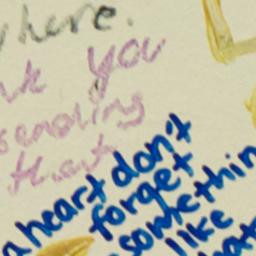 here.
you
sending
that
a heart don't
forget
somethin
like